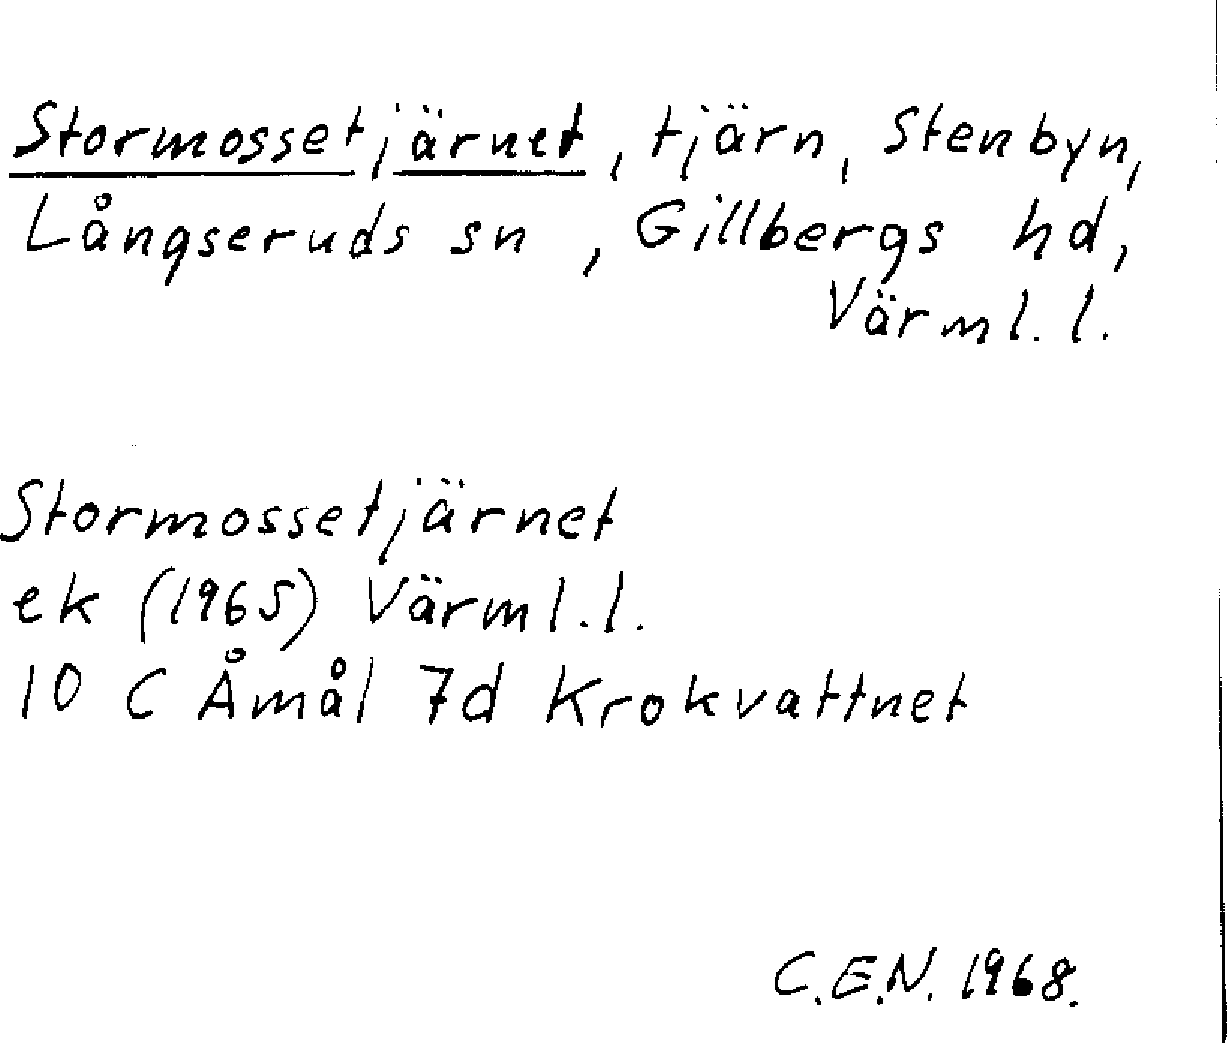 Stormossetjärnet, tjärn, Stenbyn,
Långseruds sn, Gillbergs hd,
Värml. l.
Stormossetjärnet
ek (1965) Värml. l.
10 C Åmål 7d Krokvattnet
C.E.N. 1968.